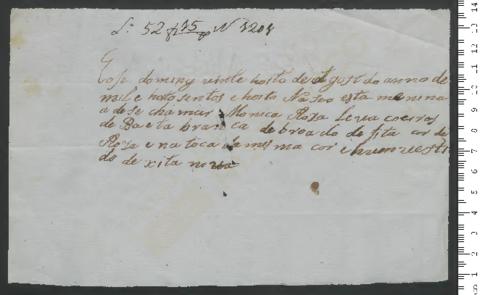 Lº 52 fl 75 Nº 3208
Oje domingo vinte hoito de Agosto do anno de
mil e hoito sentos e hoito Naseo esta menina
a de se chamar Monica Roza Leva coeiros
de Baeta branca debroado de fita cor de
Roza e na toca da mesma cor e hum vesti
do de xita novo